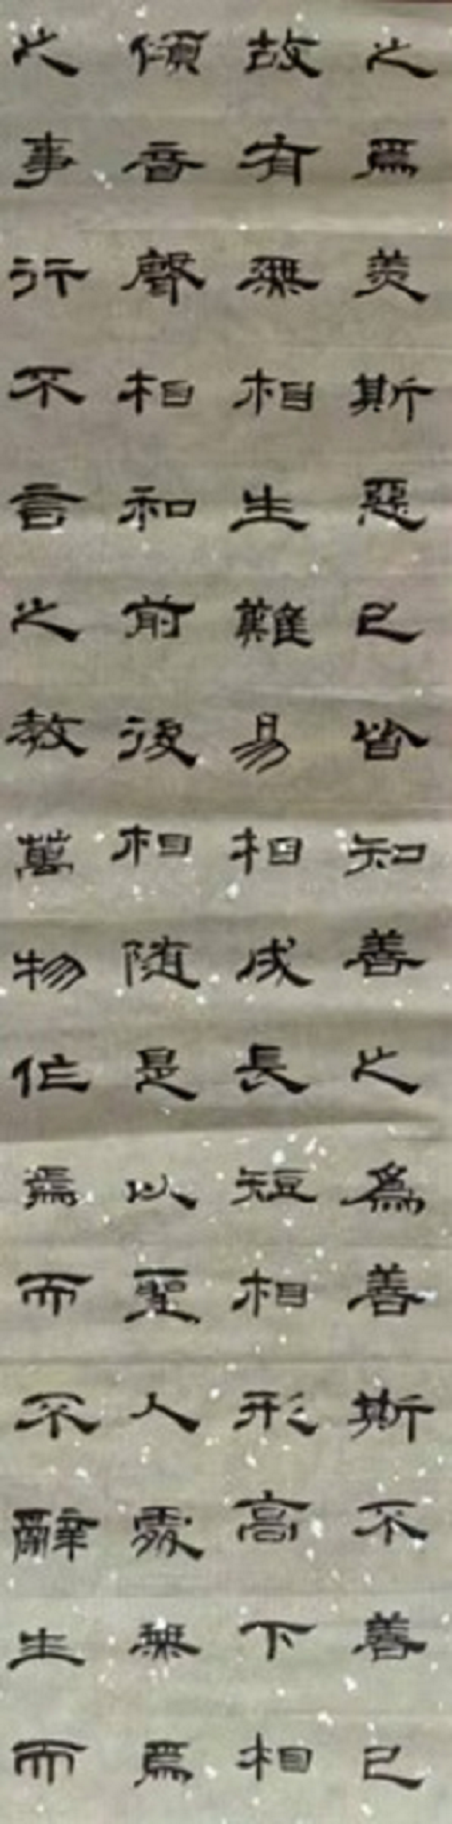 之爲美斯惡已皆知善之爲善斯不善已
故有無相生難易相成長短相形高下相
傾音聲相和前後相随是以聖人處無爲
之事行不言之教萬物作焉而不辭生而